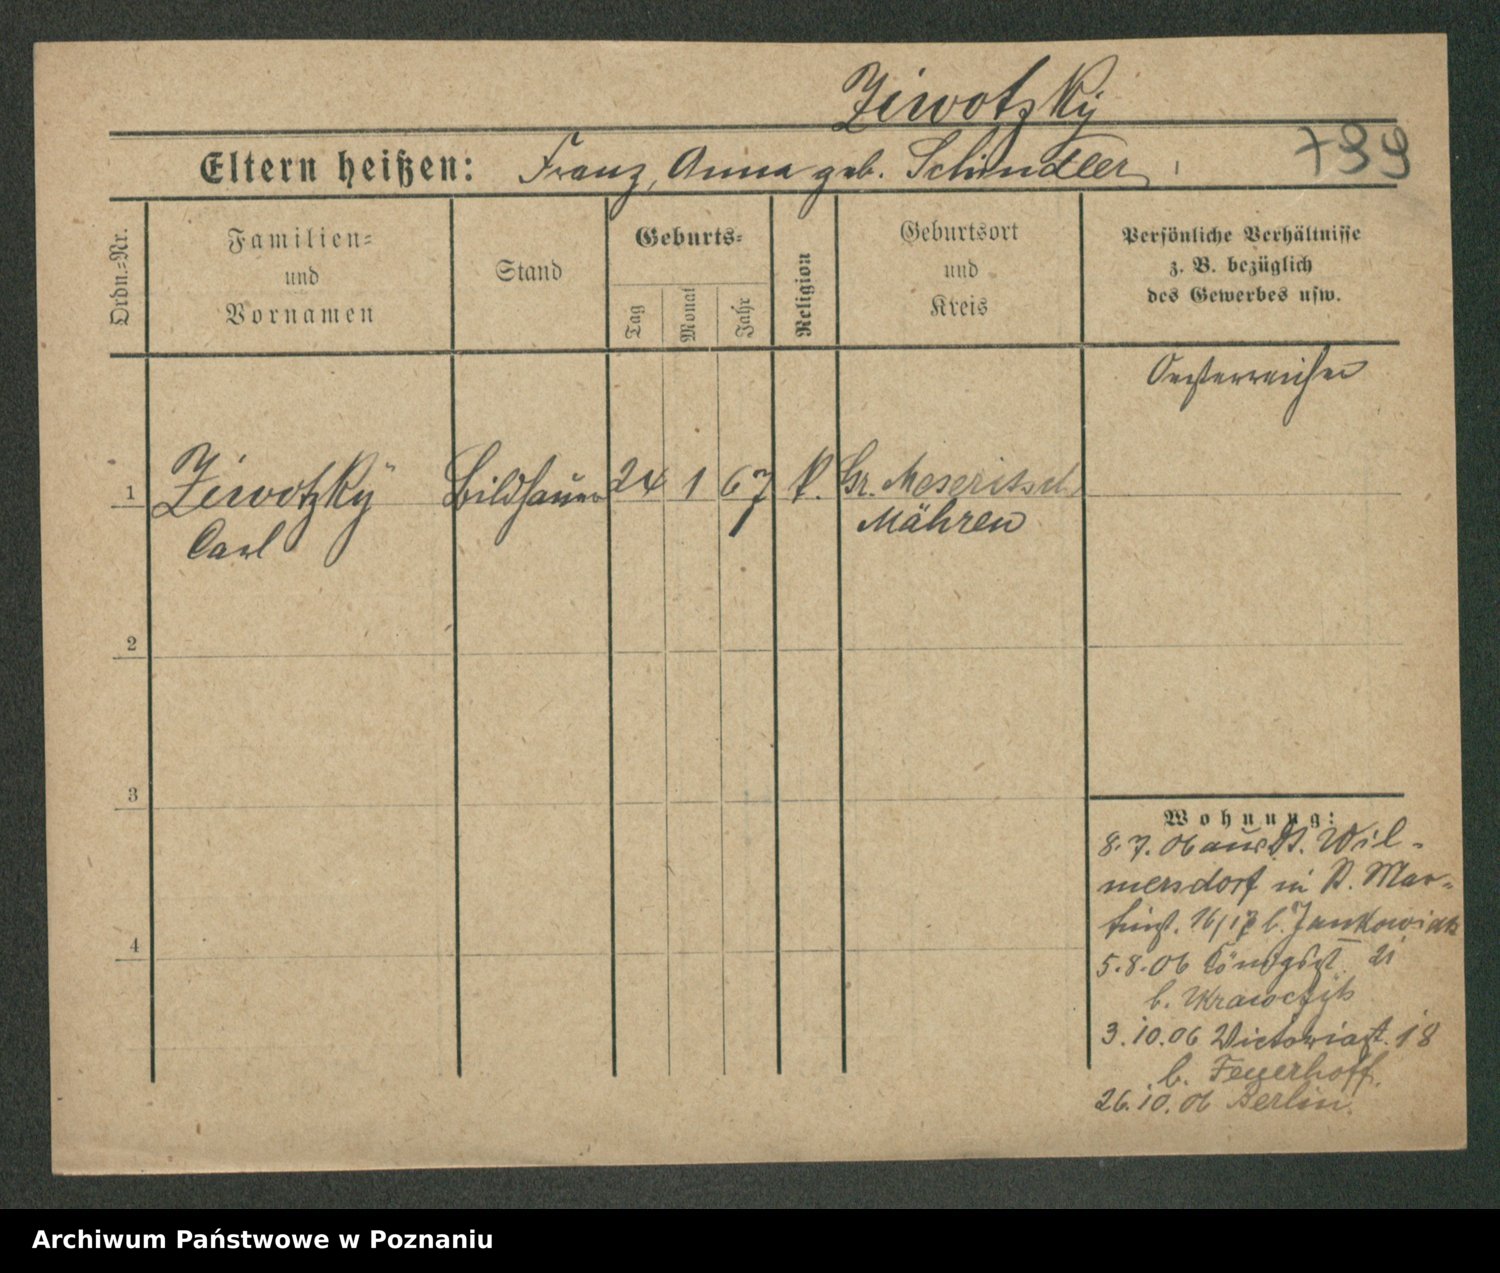 Ziwotzky
Eltern heißen: Franz, Anna geb. Schindler
799
Ordn.=Nr.
Familien=
und
Vornamen
Stand
Geburts=
Tag
Monat
Jahr
Religion
Geburtsort
und
Kreis
Persönliche Verhältnisse
z. B. bezüglich
des Gewerbes usw.
Oesterreicher
1 Ziwotzky Bildhauer 24 1 67 k. Gr. Meseritsch
Carl Mähren
2
3
4
Wohnung:
8.7.06 aus Dt. Wil-
mersdorf in St. Mar-
tinst. 16/17 b. Jankowiak
5.8.06 Königst. 21
b. Krawczyk
3.10.06 Victoriast. 18
b. Feyerhoff.
26.10.06 Berlin.
Archiwum Państwowe w Poznaniu